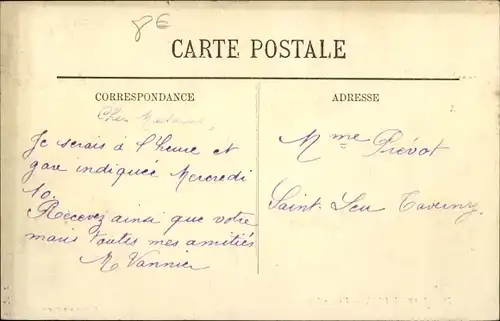 8E
CARTE POSTALE
CORRESPONDANCE
ADRESSE
Cher Madame,
Je serais à l'heure et
gare indiquée Mercredi
10.
Recevez ainsi que votre
maris toutes mes amitiés
M Vannier
Mme Prévot
Saint-Leu Taverny.